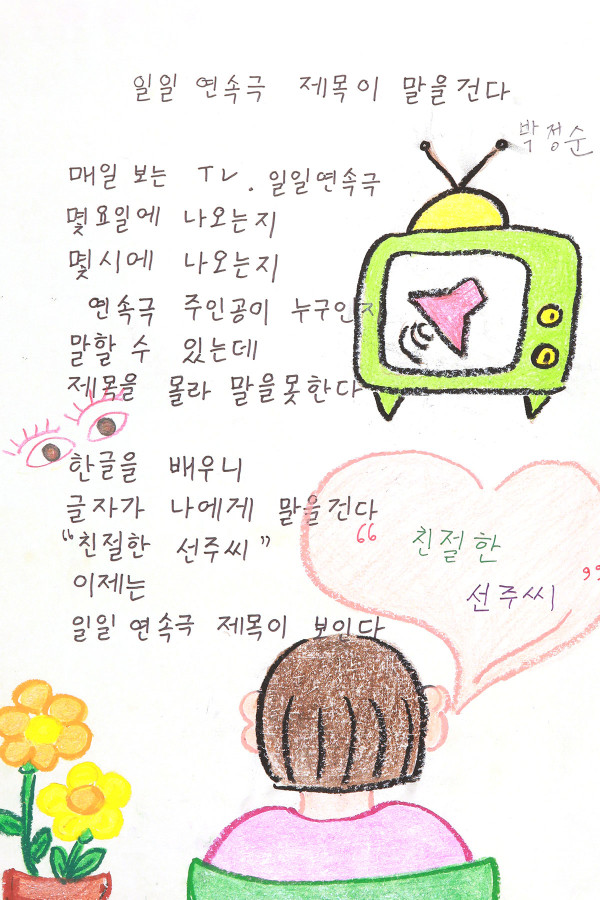 일일 연속극 제목이 말을건다
박정순
매일 보는 TV. 일일연속극
몇요일에 나오는지
몇시에 나오는지
연속극 주인공이 누구인지
말할 수 있는데
제목을 몰라 말을못한다
한글을 배우니
글자가 나에게 말을건다
"친절한 선주씨"
이제는
일일 연속극 제목이 보인다
"친절한
선주씨"